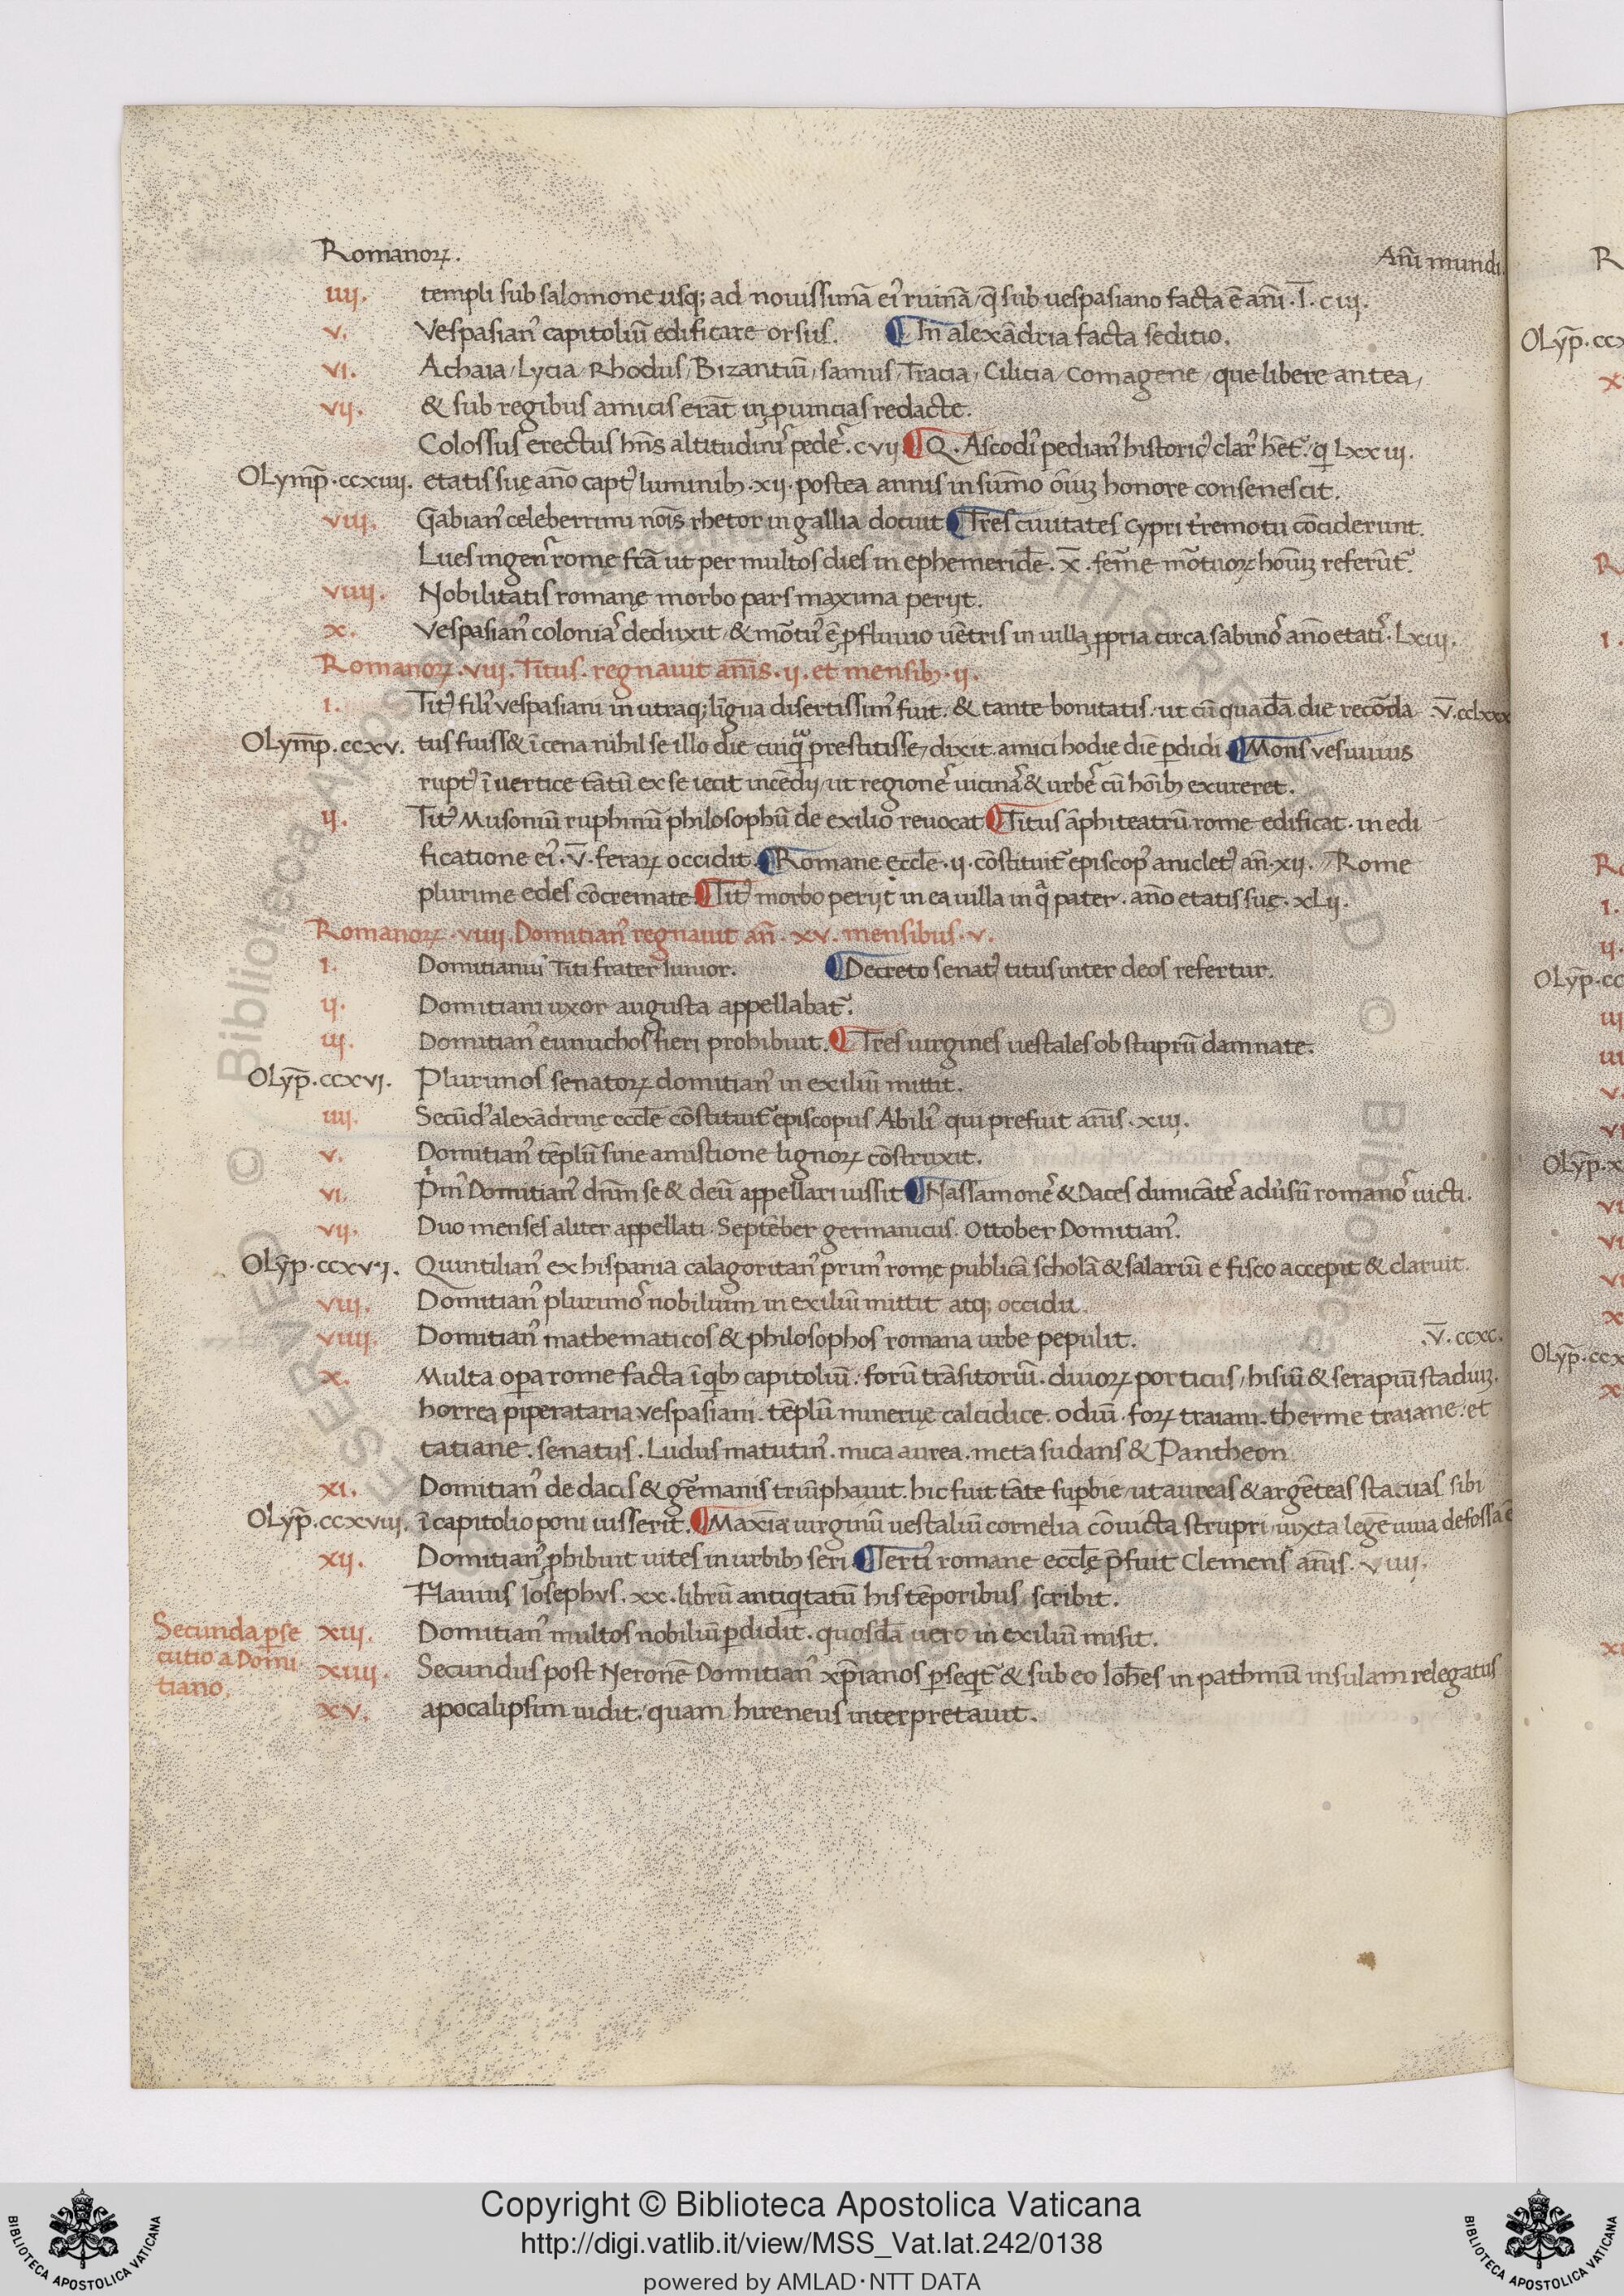 Romanoꝝ. Añi mundi.
iiij. templi sub salomone usq; ad nouissimā ei᾽ ruinā / q̄ sub uespasiano facta ē añi . Ī . ciij.
v. Vespasian᾽ capitoliū edificare orsus. ¶ In alexādria facta seditio.
vi. Achaia / Lycia / Rhodus / Bizantiū / samus / Tracia / Cilicia / comagene / que libere antea /
vij. & sub regibus amicis erāt in ꝓuincias redacte.
Colossus erectus hñs altitudinis pedes . cvij ¶ Q . Ascodi᾽ pedian᾽ historic᾽ clar᾽ het᷑ . q̇ Lxxiij.
OLymp̄ . ccxiiij. etatis suę año capt᾽ luminib; . xij . postea annis in sūmo ōiuꝫ honore consenescit.
viij. Gabian᾽ celeberrimi nōis rhetor in gallia docuit ¶ Tres ciuitates cypri t᾽remotu cōciderunt.
Lues ingens rome fcā ut per multos dies in ephemeride . x̄ . ferme mōtuoꝝ houiuꝫ referūt᷑.
viiij. Nobilitatis romanę morbo pars maxima perijt.
x. Vespasian᾽ colonias deduxit / & mōtu᾽ ē ꝓfluuio uētris in uilla ꝓpria circa sabinos año etatis . Lxiij.
Romanoꝝ . viij . Titus . regnauit añis . ij . et mensib; . ij .
i. Tit᾽ fili᾽ vespasiani in utraq; līgua disertissim᾽ fuit . & tante bonitatis . ut cū quadā die recorda .v̄.cclxxx
OLymp̄ . ccxv. tus fuiss& ī cena nihil se illo die cuiq̄ prestitisse / dixit . amici hodie diē ꝑdidi . ¶ Mons vesuuius
rupt᾽ ī uertice tātū ex se iecit incēdij / ut regiones uicinas & urbes cū hoīb; exureret .
ij. Tit᾽ Musoniū ruphinū philosophū de exilio reuocat ¶ Titus āphiteatrū rome edificat . in edi
ficatione ei᾽ . v̄ . feraꝝ occidit . ¶ Romane eccle . ij . cōstituit᷑ episcop᾽ aniclet᾽ añ . xij . / Rome
plurime edes cōcremate ¶ Tit᾽ morbo perijt in ea uilla in q̇ pater . año etatis suę . xLij .
Romanoꝝ . viiij . Domitian᾽ regnauit añ . xv . mensibus . v .
i. Domitianu᾽ Titi frater Iunior . ¶ Decreto senat᾽ titus inter deos refertur .
ij. Domitiani uxor augusta appellabat᷑.
iij. Domitian᾽ eunuchos fieri prohibuit. ¶ Tres uirgines uestales ob stuprū damnate.
OLyp̄ . ccxvi. Plurimos senatoꝝ domitian᾽ in exiliū mittit .
iiij. Secūd᾽ alexādrinę eccle cōstituit᷑ episcopus Abili᾽ qui prefuit añis . xiij .
v. Domitian᾽ tēplū sine amistione lignoꝝ cōstruxit .
vi. Pim᾽ Domitian᾽ dñm se & deū appellari iussit ¶ Nassamones & Daces dimicātes adu᾽sū romanos uicti .
vij. Duo menses aliter appellati . Septēber germanicus . Ottober Domitian᾽.
OLyp̄ . ccxvij. Quintilian᾽ ex hispania calagoritan᾽ prim᾽ rome publicā scholā & salariū e fisco accepit & claruit.
viij. Domitian᾽ plurimos nobilium in exiliū mittit atq; occidit .
viiij. Domitian᾽ mathematicos & philosophos romana urbe pepulit . .v̄.ccxc.
x. Multa oꝑa rome facta ī q̇b; capitoliū . forū trāsitoriū . diuoꝝ porticus / hisiū & serapiū stadiuꝫ.
horrea piperataria vespasiani . tēplū mineruę calcidice . odiū . foꝝ traiani . therme traiane . et
tatiane . senatus . Ludus matutin᾽ . mica aurea . meta sudans & Pantheon
xi. Domitian᾽ de dacis & gērmanis triūphauit . hic fuit tāte suꝑbie / ut aureas & argēteas statuas sibi
OLyp̄ . ccxviij. ī capitolio poni iusserit. ¶ Maxīa uirginū uestaliū cornelia cōuicta strupri / iuxta legē uiua defossa ē
xij. Domitian᾽ ꝓhibuit uites in urbib; seri . ¶ Terti᾽ romane ecclę p̄fuit Clemens añis . viiij .
Flauius Iosephvs . xx . librū antiq̇tatū his tēporibus scribit .
Secunda ꝑse xiij. Domitian᾽ multos nobiliū ꝑdidit . quosdā uero in exiliū misit .
cutio a Domi xiiij. Secundus post Neronē Domitian᾽ xp̄ianos ꝑseq̇t᷑ & sub eo Iohes in pathmū insulam relegatus
tiano. xv. apocalipsim uidit / quam hireneus interpretauit .
Copyright © Biblioteca Apostolica Vaticana
http://digi.vatlib.it/view/MSS_Vat.lat.242/0138
powered by AMLAD·NTT DATA
BIBLIOTECA APOSTOLICA VATICANA
BIBLIOTECA APOSTOLICA VATICANA